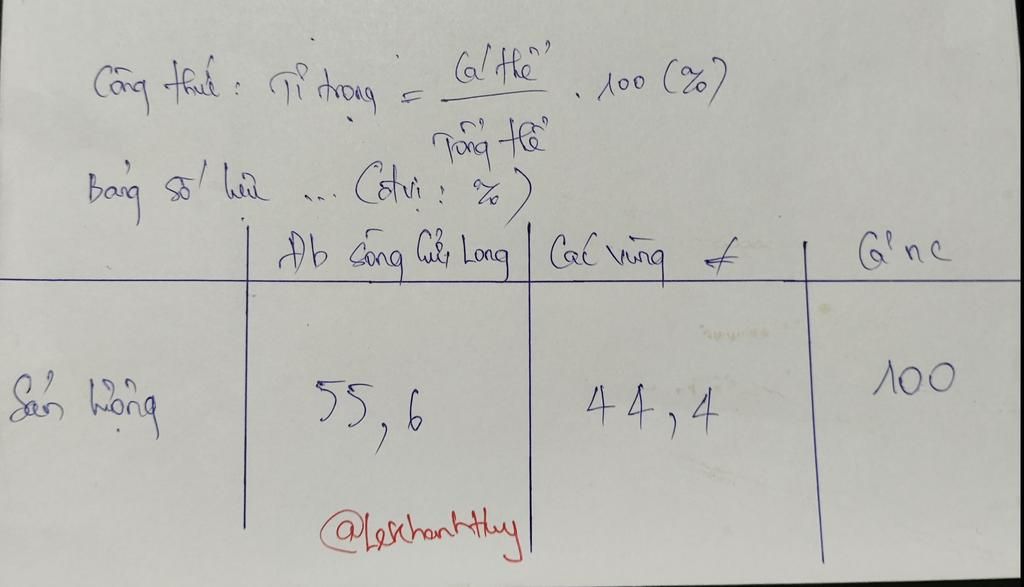 Công thức: Tỉ trọng = Cá thể / Tổng thể . 100 (%)
Bảng số liệu ... (Đơn vị: %)
Đb sông Cửu Long Các vùng ≠ Cả nc
Sản lượng 55,6 44,4 100
@Lekhanhthuy